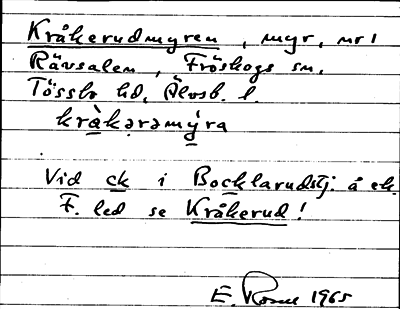 Kråkerudmyren, myr, nr 1
Rävsalen, Fröskogs sn,
Tössbo hd, Älvsb. l.
kràkaramy̍ra
Vid ck i Bocklarudstj. å ek.
F. led se Kråkerud!
E. 1965